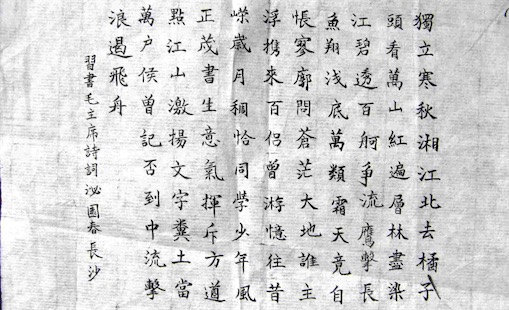 獨立寒秋湘江北去橘子
頭看萬山紅遍層林盡染
江碧透百舸爭流鷹擊長
魚翔淺底萬類霜天竟自
悵寥廓問蒼茫大地誰主
浮携來百侶曾游憶往昔
嶸歲月稠恰同學少年風
正茂書生意氣揮斥方道
點江山激揚文字糞土當
萬户侯曾記否到中流擊
浪遏飛舟
習書毛主席詩詞泌國春長沙